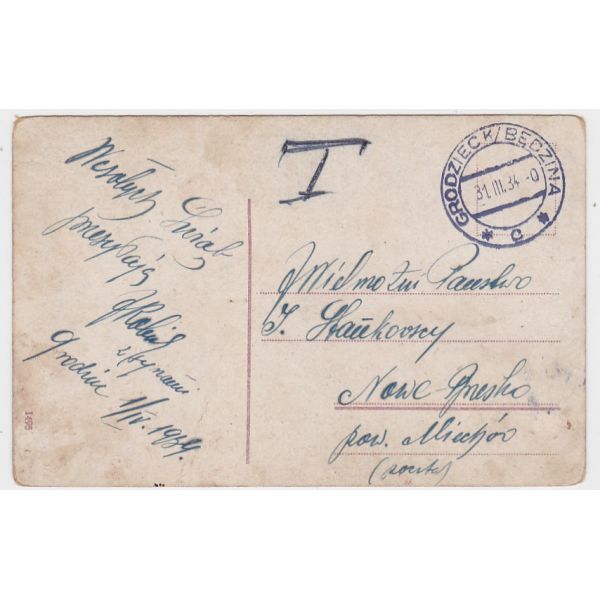 Wesołych Świąt
przesyłają
z synami
Grodziec 1/IV. 1934.
T
GRODZIEC K/BĘDZINA
31.III.34.-0
c
Wielmożni Państwo
J. Stankowscy
Nowe-Bresko
pow. Miechów
(poczta)
1456